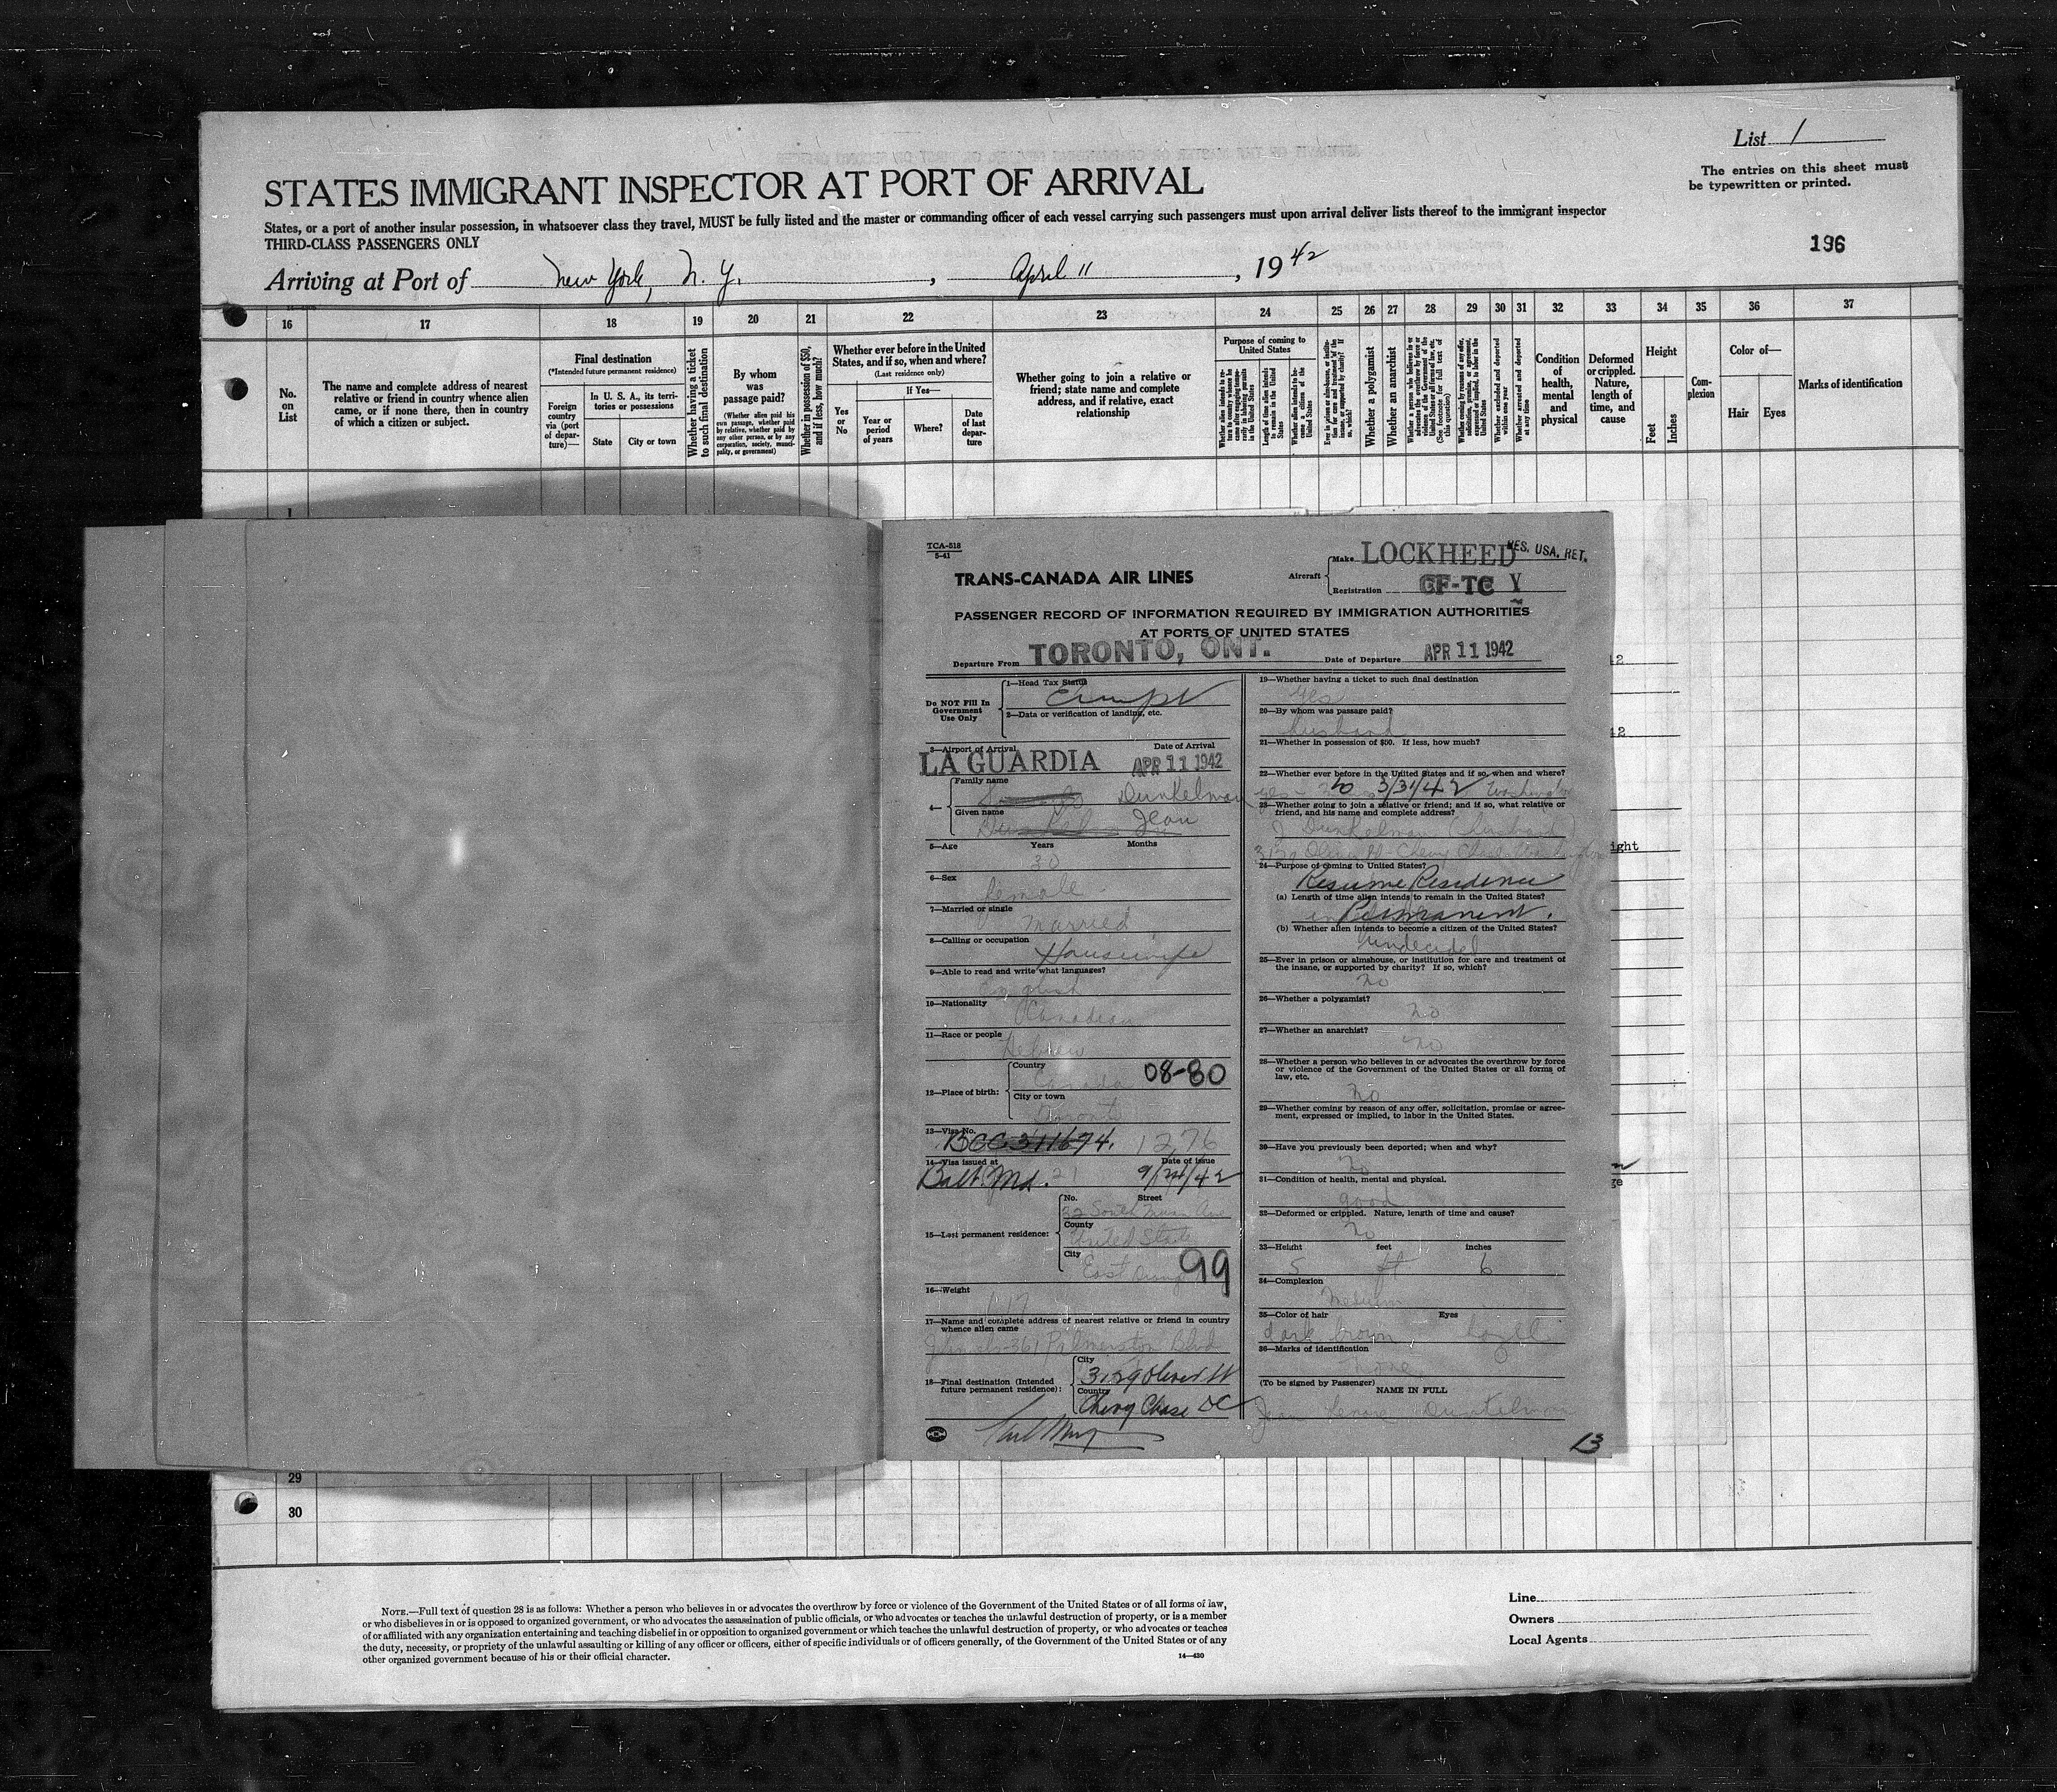 List 1
The entries on this sheet must
be typewritten or printed.
STATES IMMIGRANT INSPECTOR AT PORT OF ARRIVAL
States, or a port of another insular possession, in whatsoever class they travel, MUST be fully listed and the master or commanding officer of each vessel carrying such passengers must upon arrival deliver lists thereof to the immigrant inspector
THIRD-CLASS PASSENGERS ONLY
196
Arriving at Port of New York, N. Y., April 11, 1942
16 17 18 19 20 21 22 23 24 25 26 27 28 29 30 31 32 33 34 35 36 37
No. on List
The name and complete address of nearest relative or friend in country whence alien came, or if none there, then in country of which a citizen or subject.
Final destination
(*Intended future permanent residence)
Foreign country via (port of departure)—
In U. S. A., its territories or possessions
State
City or town
Whether having a ticket to such final destination
By whom was passage paid?
(Whether alien paid his own passage, whether paid by relative, whether paid by any other person, or by any corporation, society, municipality, or government)
Whether in possession of $50, and if less, how much?
Whether ever before in the United States, and if so, when and where?
(Last residence only)
Yes or No
If Yes—
Year or period of years
Where?
Date of last departure
Whether going to join a relative or friend; state name and complete address, and if relative, exact relationship
Purpose of coming to United States
Whether a polygamist
Whether an anarchist
Condition of health, mental and physical
Deformed or crippled. Nature, length of time, and cause
Height
Feet
Inches
Complexion
Color of—
Hair
Eyes
Marks of identification
1
TCA-518
5-41
TRANS-CANADA AIR LINES
Aircraft
Make LOCKHEED
RES. USA. RET.
Registration CF-TC Y
PASSENGER RECORD OF INFORMATION REQUIRED BY IMMIGRATION AUTHORITIES
AT PORTS OF UNITED STATES
Departure From TORONTO, ONT.
Date of Departure APR 11 1942
Do NOT Fill In
Government
Use Only
1—Head Tax Status
Exempt
2—Data or verification of landing, etc.
3—Airport of Arrival
Date of Arrival
LA GUARDIA APR 11 1942
4— Family name
Dunkelman
Given name
Jean
5—Age Years Months
30
6—Sex
female
7—Married or single
Married
8—Calling or occupation
Housewife
9—Able to read and write what languages?
English
10—Nationality
Canadian
11—Race or people
Hebrew
12—Place of birth:
Country
Canada 08-80
City or town
Toronto
13—Visa No.
BCC 311674. 1276
14—Visa issued at
Date of issue
Balt. Md.
15—Last permanent residence:
No. Street
32 South Munn Ave
County
United States
City
East 99
16—Weight
117
17—Name and complete address of nearest relative or friend in country
whence alien came
361 Palmerston Blvd
18—Final destination (Intended
future permanent residence):
City
3129 Oliver St
Country
Chevy Chase DC
19—Whether having a ticket to such final destination
Yes
20—By whom was passage paid?
husband
21—Whether in possession of $50. If less, how much?
22—Whether ever before in the United States and if so, when and where?
yes to 3/31/42 Washington
23—Whether going to join a relative or friend; and if so, what relative or
friend, and his name and complete address?
J. Dunkelman (husband)
24—Purpose of coming to United States?
Resume Residence
(a) Length of time alien intends to remain in the United States?
Permanent.
(b) Whether alien intends to become a citizen of the United States?
undecided
25—Ever in prison or almshouse, or institution for care and treatment of
the insane, or supported by charity? If so, which?
no
26—Whether a polygamist?
no
27—Whether an anarchist?
no
28—Whether a person who believes in or advocates the overthrow by force
or violence of the Government of the United States or all forms of
law, etc.
no
29—Whether coming by reason of any offer, solicitation, promise or agree-
ment, expressed or implied, to labor in the United States.
30—Have you previously been deported; when and why?
no
31—Condition of health, mental and physical.
good
32—Deformed or crippled. Nature, length of time and cause?
no
33—Height feet inches
5 ft 6
34—Complexion
Medium
35—Color of hair Eyes
dark brown hazel
36—Marks of identification
none
(To be signed by Passenger)
NAME IN FULL
Jean Dunkelman
13
29
30
NOTE.—Full text of question 28 is as follows: Whether a person who believes in or advocates the overthrow by force or violence of the Government of the United States or of all forms of law,
or who disbelieves in or is opposed to organized government, or who advocates the assassination of public officials, or who advocates or teaches the unlawful destruction of property, or is a member
of or affiliated with any organization entertaining and teaching disbelief in or opposition to organized government or which teaches the unlawful destruction of property, or who advocates or teaches
the duty, necessity, or propriety of the unlawful assaulting or killing of any officer or officers, either of specific individuals or of officers generally, of the Government of the United States or of any
other organized government because of his or their official character.
14—430
Line
Owners
Local Agents